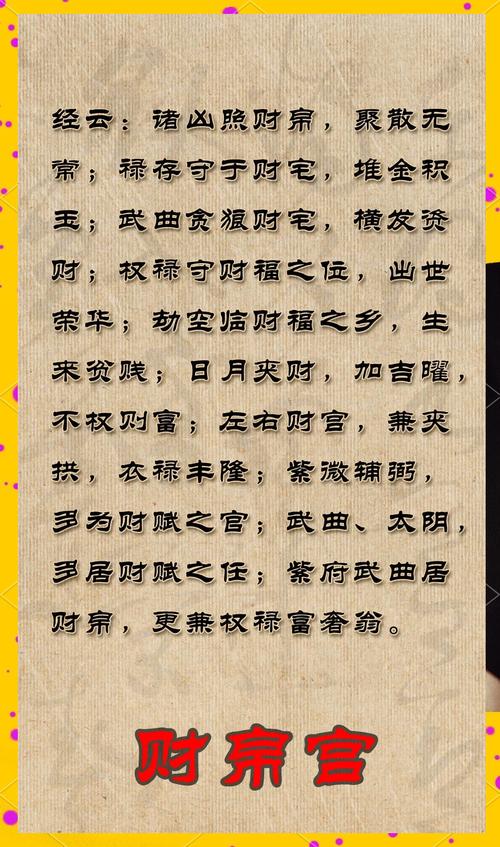 经云：诸凶照财帛，聚散无
常；禄存守于财宅，堆金积
玉；武曲贪狼财宅，横发资
财；权禄守财福之位，出世
荣华；劫空临财福之乡，生
来贫贱；日月夹财，加吉曜，
不权则富；左右财宫，兼夹
拱，衣禄丰隆；紫微辅弼，
多为财赋之官；武曲、太阴，
多居财赋之任；紫府武曲居
财帛，更兼权禄富奢翁。
财帛宫